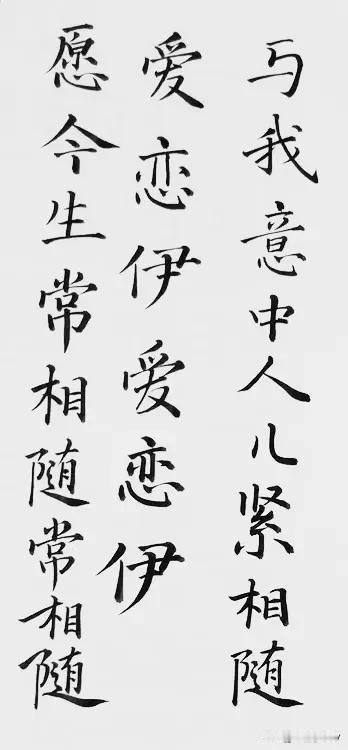 与我意中人儿紧相随
爱恋伊爱恋伊
愿今生常相随常相随